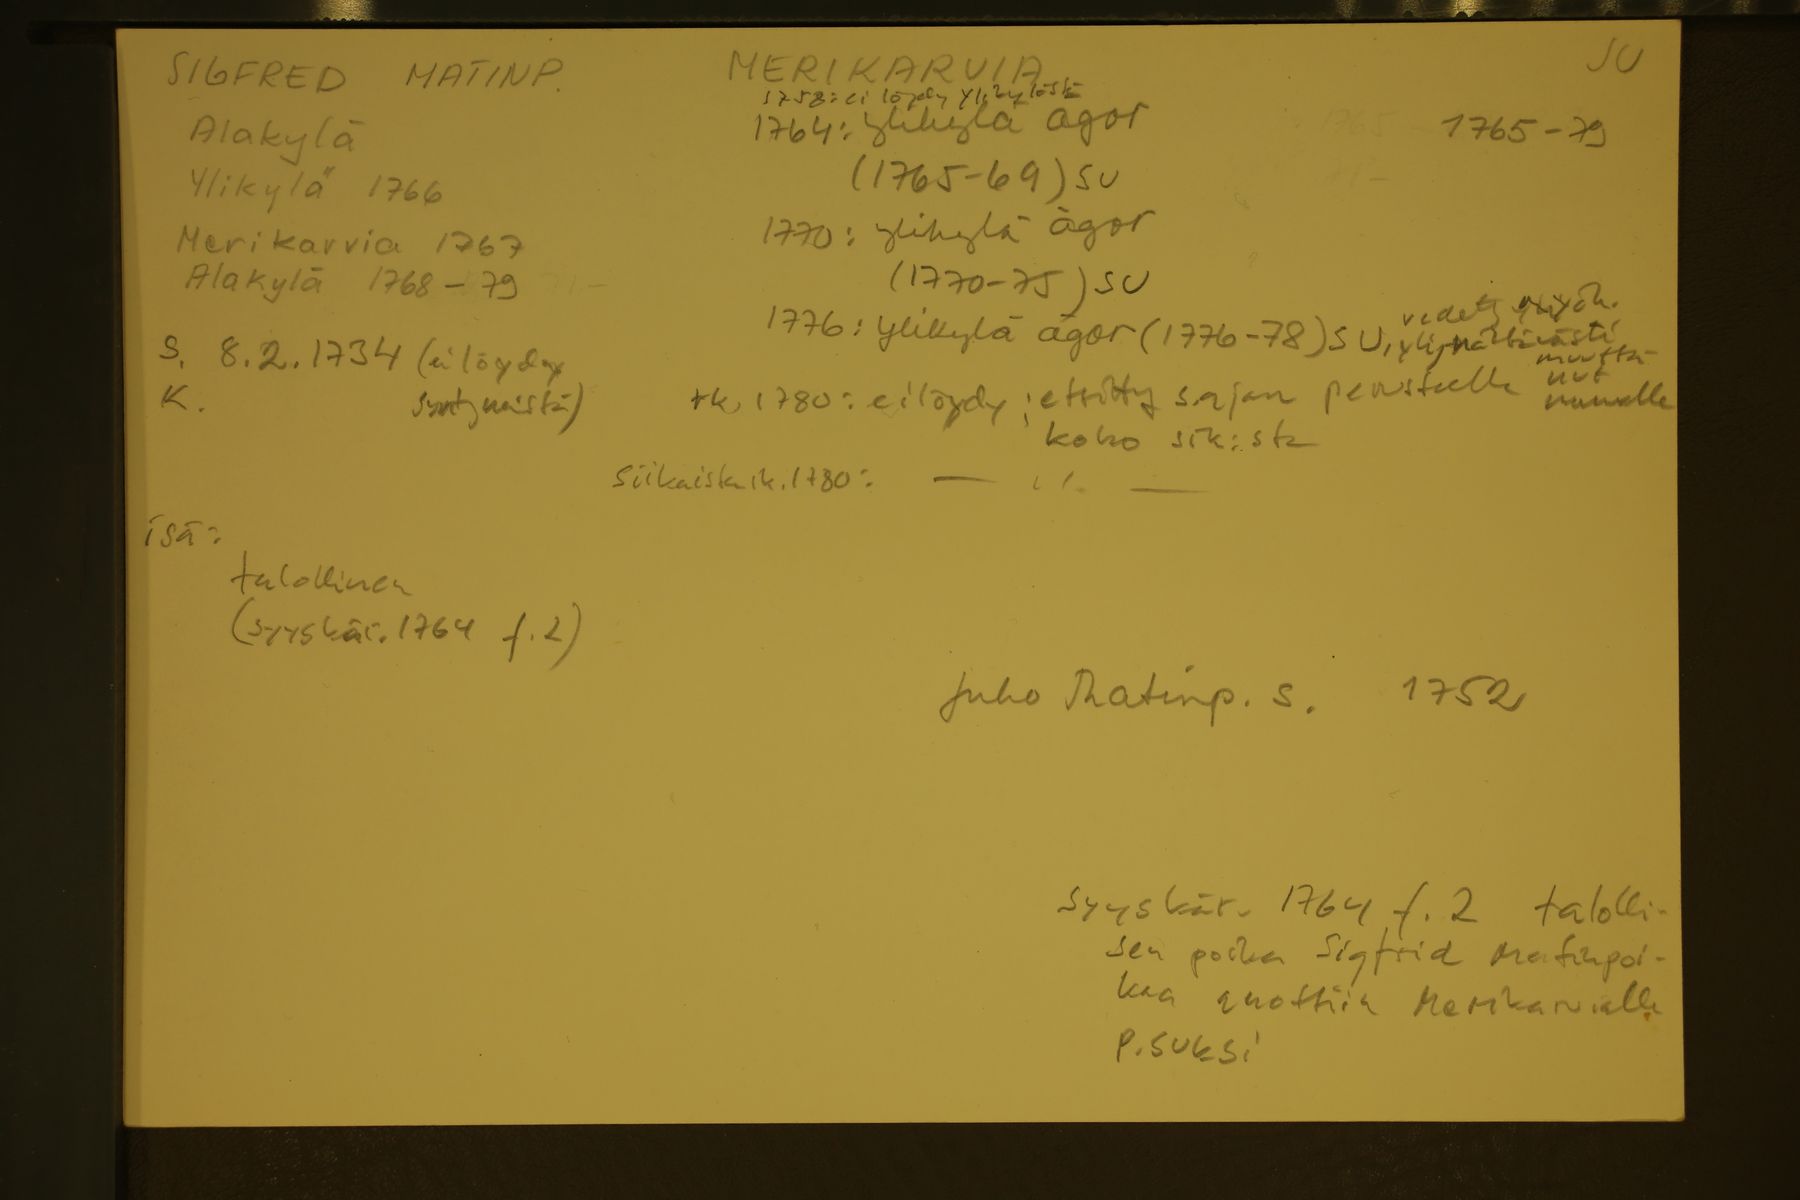 SIGFRED MATINP. MERIKARVIA SU
1758: ei löydy ylikylästä
Alakylä 1764: ylikylä ägor 1765-79
Ylikylä 1766 (1765-69) SU
Merikarvia 1767 1770: ylikylä ägor
Alakylä 1768-79 (1770-75) SU
1776: ylikylä ägor (1776-78) SU,
S. 8.2.1734 (ei löydy
K. syntyneistä)
rk. 1780: ei löydy; etsitty s.ajan perusteella
muutta-
nut
muualle
koko srk:sta
Siikaisten rk. 1780: — " —
isä:
talollinen
(syyskär. 1764 f.2)
Juho Matinp. s. 1752
syyskär. 1764 f. 2 talolli-
sen poika Sigfrid Matinpoi-
kaa Merikarvialle
p.suksi